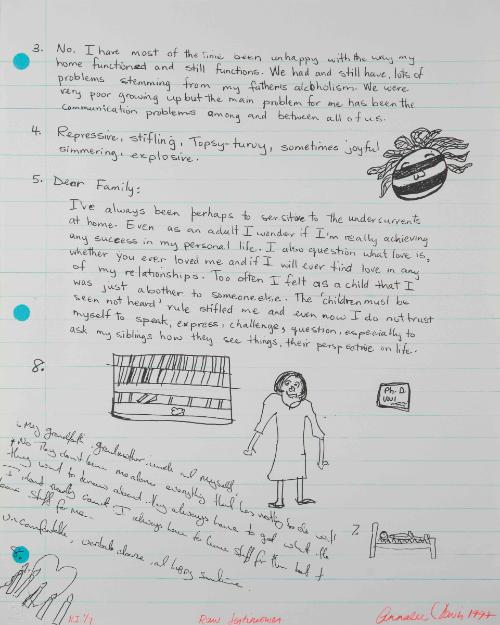 3. No. I have most of the time been unhappy with the way my
home functioned and still functions. We had and still have, lots of
problems stemming from my father's alcoholism. We were
very poor growing up but the main problem for me has been the
communication problems among and between all of us.
4. Repressive, stifling, Topsy-turvy, sometimes joyful
simmering, explosive.
5. Dear Family:
I've always been perhaps to sensitive to the undercurrents
at home. Even as an adult I wonder if I'm really achieving
any success in my personal life. I also question what love is,
whether you ever loved me and if I will ever find love in any
of my relationships. Too often I felt as a child that I
was just a bother to someone else. The 'children must be
seen not heard' rule stifled me and even now I do not trust
myself to speak, express, challenge, question, especially to
ask my siblings how they see things, their perspective on life.
8.
Ph.D.
My grandfather, grandmother, uncle and myself.
No They don't leave me alone everything that has nothing to do with
they want to know about. They always have to get what the
I don't really count I always have to leave stuff for them but
leave stuff for me.
Uncomfortable, verbal abuse,
7.
8.
Raw Testimonies
1997